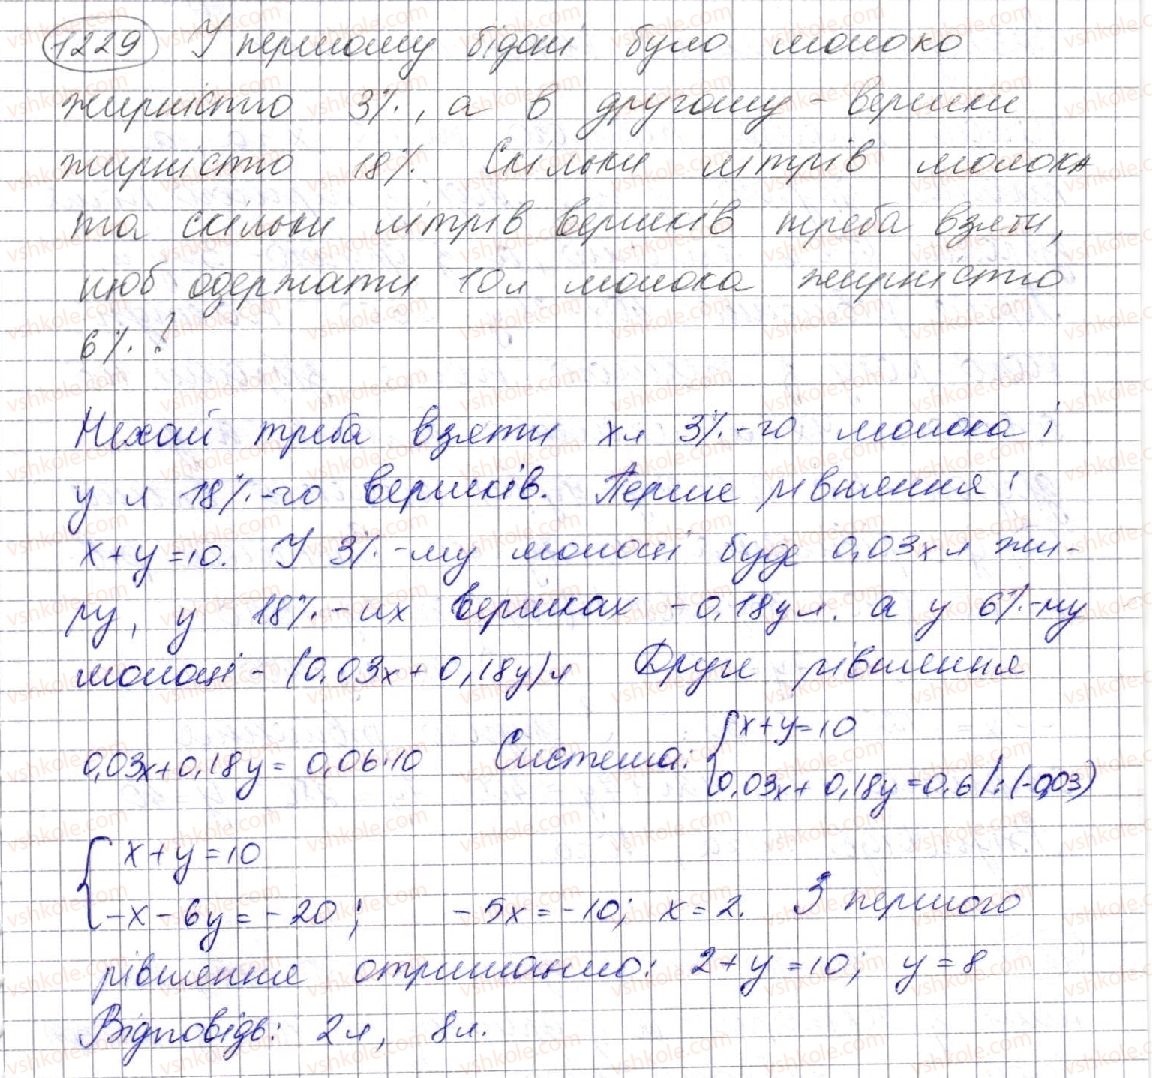 1229 У першому бідоні було молоко
жирністю 3%, а в другому - вершки
жирністю 18%. Скільки літрів молока
та скільки літрів вершків треба взяти,
щоб одержати 10л молока жирністю
6%?
Нехай треба взяти xл 3%-го молока і
y л 18%-го вершків. Перше рівняння:
x+y=10. У 3%-му молоці буде 0,03x л жи-
ру, у 18%-их вершках - 0,18y л. а у 6%-му
молоці - (0,03x+0,18y)л Друге рівняння
0,03x+0,18y = 0,06·10 Система: { x+y=10
0,03x+0,18y=0,6 |:(-0,03)
{ x+y=10
-x-6y=-20; -5x=-10; x=2. З першого
рівняння отримаємо: 2+y=10; y=8
Відповідь: 2л, 8л.